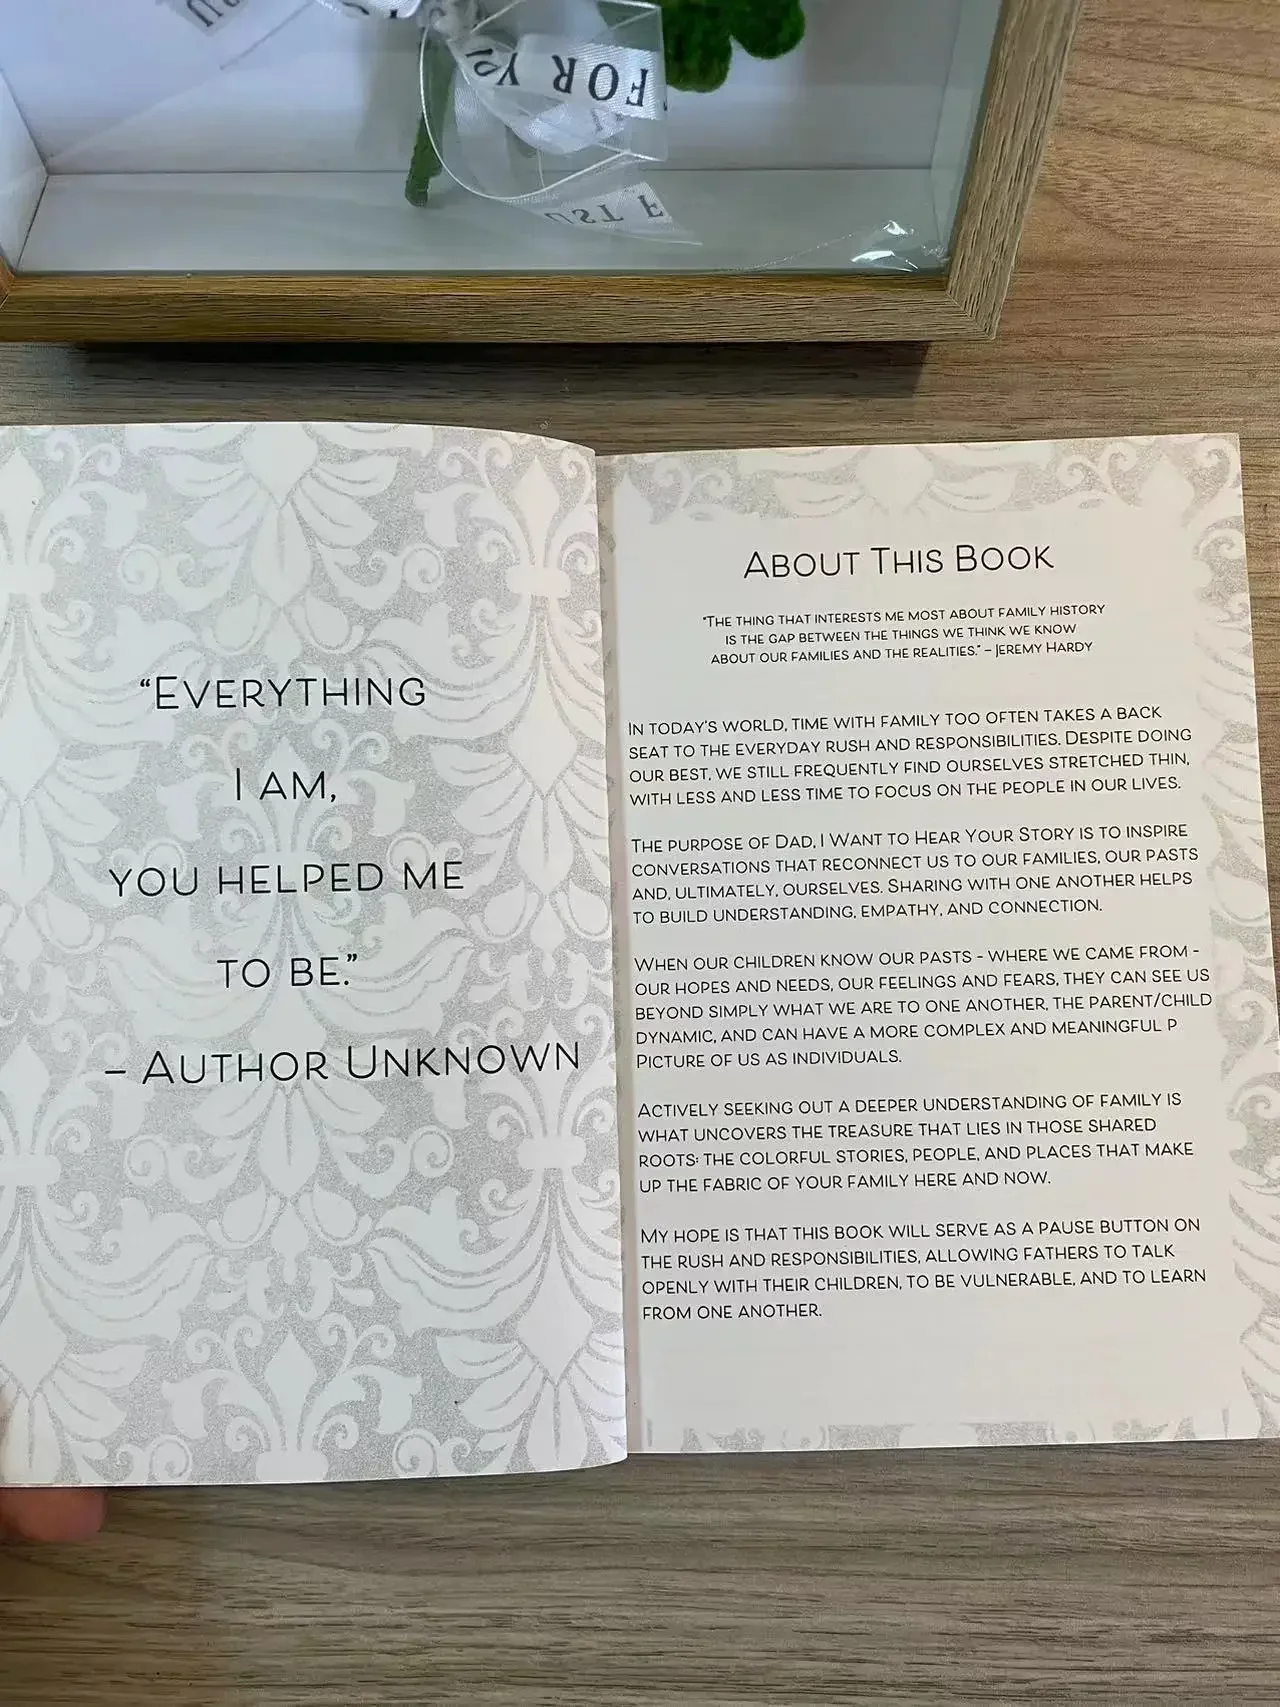 FOR YO
UST F
“EVERYTHING
I AM,
YOU HELPED ME
TO BE.”
– AUTHOR UNKNOWN
ABOUT THIS BOOK
“THE THING THAT INTERESTS ME MOST ABOUT FAMILY HISTORY
IS THE GAP BETWEEN THE THINGS WE THINK WE KNOW
ABOUT OUR FAMILIES AND THE REALITIES.” – JEREMY HARDY
IN TODAY'S WORLD, TIME WITH FAMILY TOO OFTEN TAKES A BACK
SEAT TO THE EVERYDAY RUSH AND RESPONSIBILITIES. DESPITE DOING
OUR BEST, WE STILL FREQUENTLY FIND OURSELVES STRETCHED THIN,
WITH LESS AND LESS TIME TO FOCUS ON THE PEOPLE IN OUR LIVES.
THE PURPOSE OF DAD, I WANT TO HEAR YOUR STORY IS TO INSPIRE
CONVERSATIONS THAT RECONNECT US TO OUR FAMILIES, OUR PASTS
AND, ULTIMATELY, OURSELVES. SHARING WITH ONE ANOTHER HELPS
TO BUILD UNDERSTANDING, EMPATHY, AND CONNECTION.
WHEN OUR CHILDREN KNOW OUR PASTS - WHERE WE CAME FROM -
OUR HOPES AND NEEDS, OUR FEELINGS AND FEARS, THEY CAN SEE US
BEYOND SIMPLY WHAT WE ARE TO ONE ANOTHER, THE PARENT/CHILD
DYNAMIC, AND CAN HAVE A MORE COMPLEX AND MEANINGFUL P
PICTURE OF US AS INDIVIDUALS.
ACTIVELY SEEKING OUT A DEEPER UNDERSTANDING OF FAMILY IS
WHAT UNCOVERS THE TREASURE THAT LIES IN THOSE SHARED
ROOTS: THE COLORFUL STORIES, PEOPLE, AND PLACES THAT MAKE
UP THE FABRIC OF YOUR FAMILY HERE AND NOW.
MY HOPE IS THAT THIS BOOK WILL SERVE AS A PAUSE BUTTON ON
THE RUSH AND RESPONSIBILITIES, ALLOWING FATHERS TO TALK
OPENLY WITH THEIR CHILDREN, TO BE VULNERABLE, AND TO LEARN
FROM ONE ANOTHER.